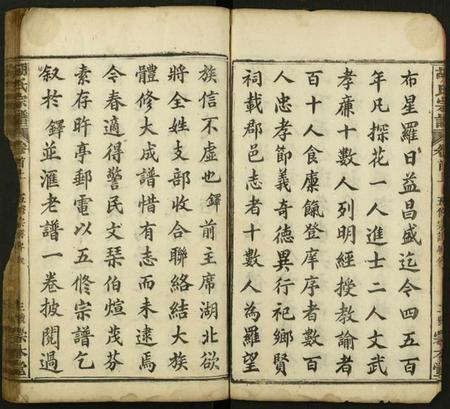 布星羅日益昌盛迄今四五百
年凡探花一人進士二人文武
孝廉十數人列明經授教諭者
百十人食廩餼登庠序者數百
人忠孝節義奇德異行祀鄉賢
祠載郡邑志者十數人為羅望
族信不虛也鐸前主席湖北欲
將全姓支部收合聯絡結大族
體修大成譜惜有志而未逮焉
今春適得警民文琹伯煊茂芬
素存旿亭郵電以五修宗譜乞
叙於鐸並滙老譜一卷披閱過
胡氏宗譜
卷首
五修宗譜
崇本堂